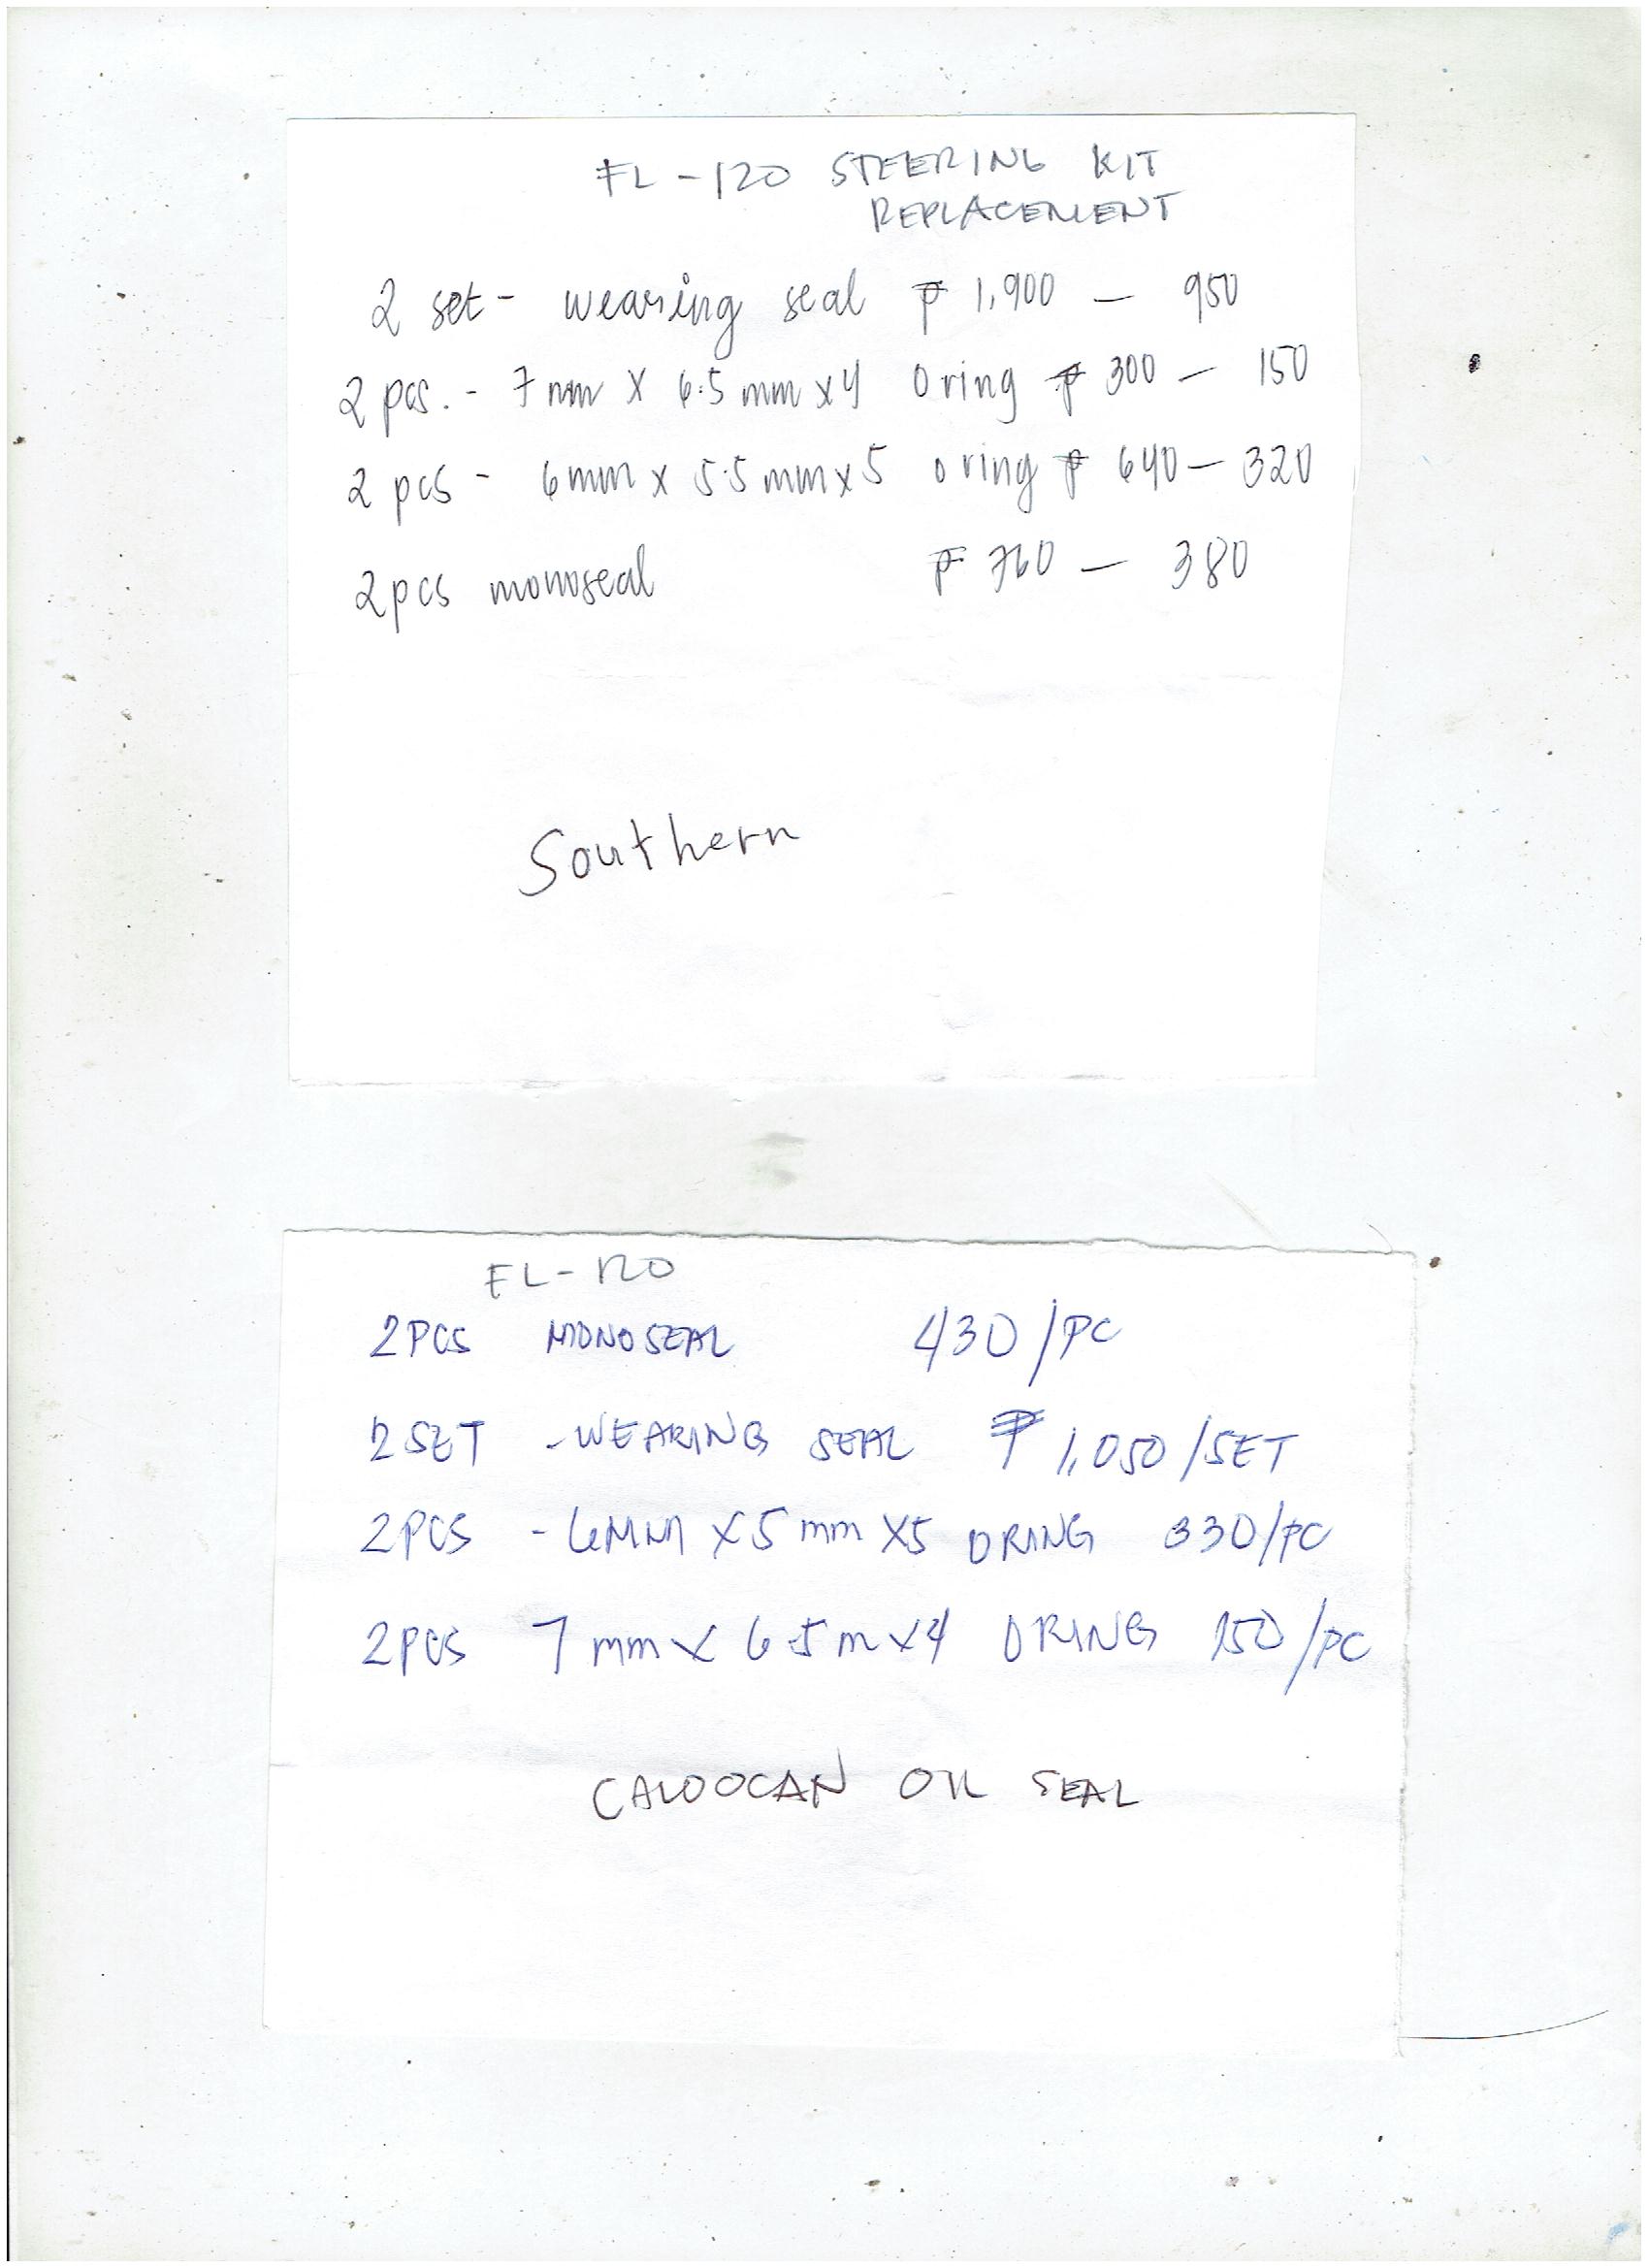 FL-120 STEERING KIT
REPLACEMENT
2 set - wearing seal ₱ 1,900 — 950
2 pcs. - 7 mm x 6.5 mm x 4 O ring ₱ 300 — 150
2 pcs - 6mm x 5.5 mm x 5 o ring ₱ 640 — 320
2 pcs monoseal ₱ 760 — 380
Southern
FL-120
2 PCS MONOSEAL 430/PC
2 SET - WEARING SEAL ₱ 1,050/SET
2 PCS - 6MM X 5 mm X5 ORING 330/PC
2 PCS 7 mm x 6.5 m x4 ORING 150/PC
CALOOCAN OIL SEAL